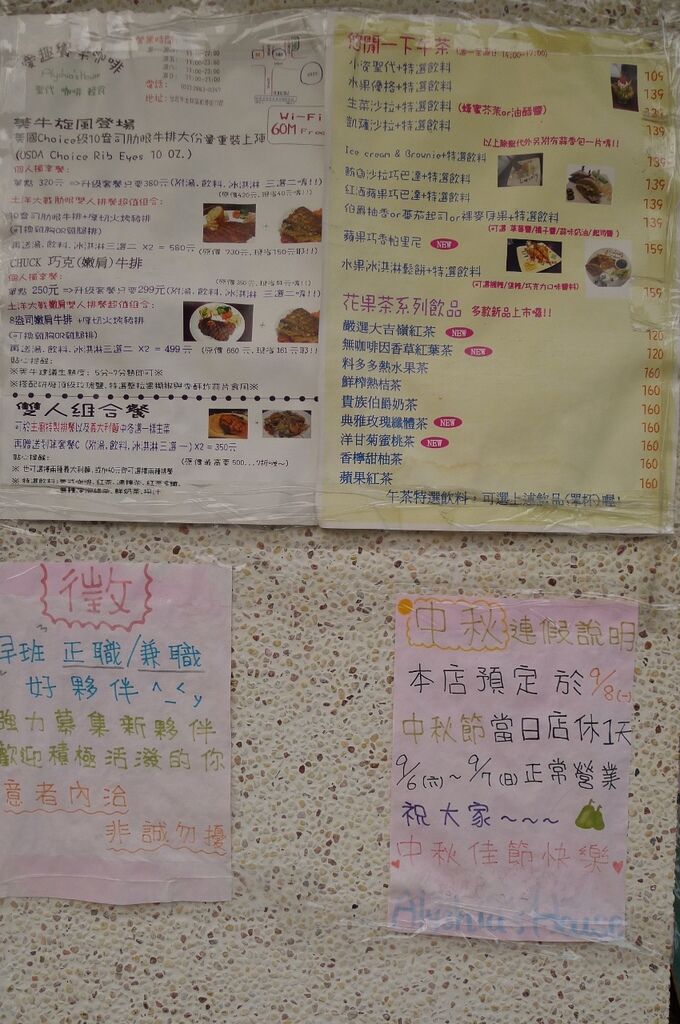 咖啡
Alyshia's House
聖代 咖啡 輕食
營業時間:
電話:
地址:
Wi-Fi
60M Free
美牛旋風登場
美國Choice級10盎司肋眼牛排大份量重裝上陣
(USDA Choice Rib Eyes 10 OZ.)
個人獨享餐:
單點 320元 →升級套餐只要380元(附湯、飲料、冰淇淋 三選二唷!!)
土洋大戰肋眼雙人排餐超值組合:
10盎司肋眼牛排+厚切火烤豬排
(可換雞胸OR雞腿排)
再送湯、飲料、冰淇淋三選二 X2 = 580元 (原價 730元, 現省150元耶!!)
CHUCK 巧克(嫩肩)牛排
個人獨享餐:
單點 250元 →升級套餐只要299元(附湯、飲料、冰淇淋 三選二唷!!)
土洋大戰嫩肩雙人排餐超值組合:
8盎司嫩肩牛排 +厚切火烤豬排
(可換雞胸OR雞腿排)
再送湯、飲料、冰淇淋三選二 X2 = 499 元 (原價 660 元, 現省 161 元耶!!)
貼心提醒:
※美牛建議生熟度: 5分~7分熟即可※
雙人組合餐
可於主廚特製排餐以及義大利麵中各選一樣主菜
再贈送刮冰套餐C (附湯、飲料、冰淇淋 三選一) X2 = 350元
貼心提醒:
(原價最高要 500...)
悠閒一下午茶
小資聖代+特選飲料 109
水果優格+特選飲料 139
生菜沙拉+特選飲料 (蜂蜜芥茉or油醋醬) 139
凱薩沙拉+特選飲料 139
以上除聖代外另附有蒜香包一片唷!!
Ice cream & Brownie+特選飲料 139
鮪魚沙拉巧巴達+特選飲料 139
紅酒蘋果巧巴達+特選飲料 139
伯爵柚香or蕃茄起司or裸麥貝果+特選飲料 139
蘋果巧香帕里尼 NEW 159
水果冰淇淋鬆餅+特選飲料 159
花果茶系列飲品 多款新品上市囉!!
嚴選大吉嶺紅茶 NEW 120
無咖啡因香草紅葉茶 NEW 120
料多多熱水果茶 160
鮮榨熱桔茶 160
貴族伯爵奶茶 160
典雅玫瑰纖體茶 NEW 160
洋甘菊蜜桃茶 NEW 160
香檸甜柚茶 160
蘋果紅茶 160
午茶特選飲料，可選上述飲品(單杯)喔!
徵
早班 正職/兼職
好夥伴 ^_<y
強力募集新夥伴
歡迎積極活潑的你
意者內洽
非誠勿擾
中秋連假說明
本店預定於9/8(一)
中秋節當日店休1天
9/6(六)~9/7(日)正常營業
祝大家~~~
中秋佳節快樂
Alyshia's House